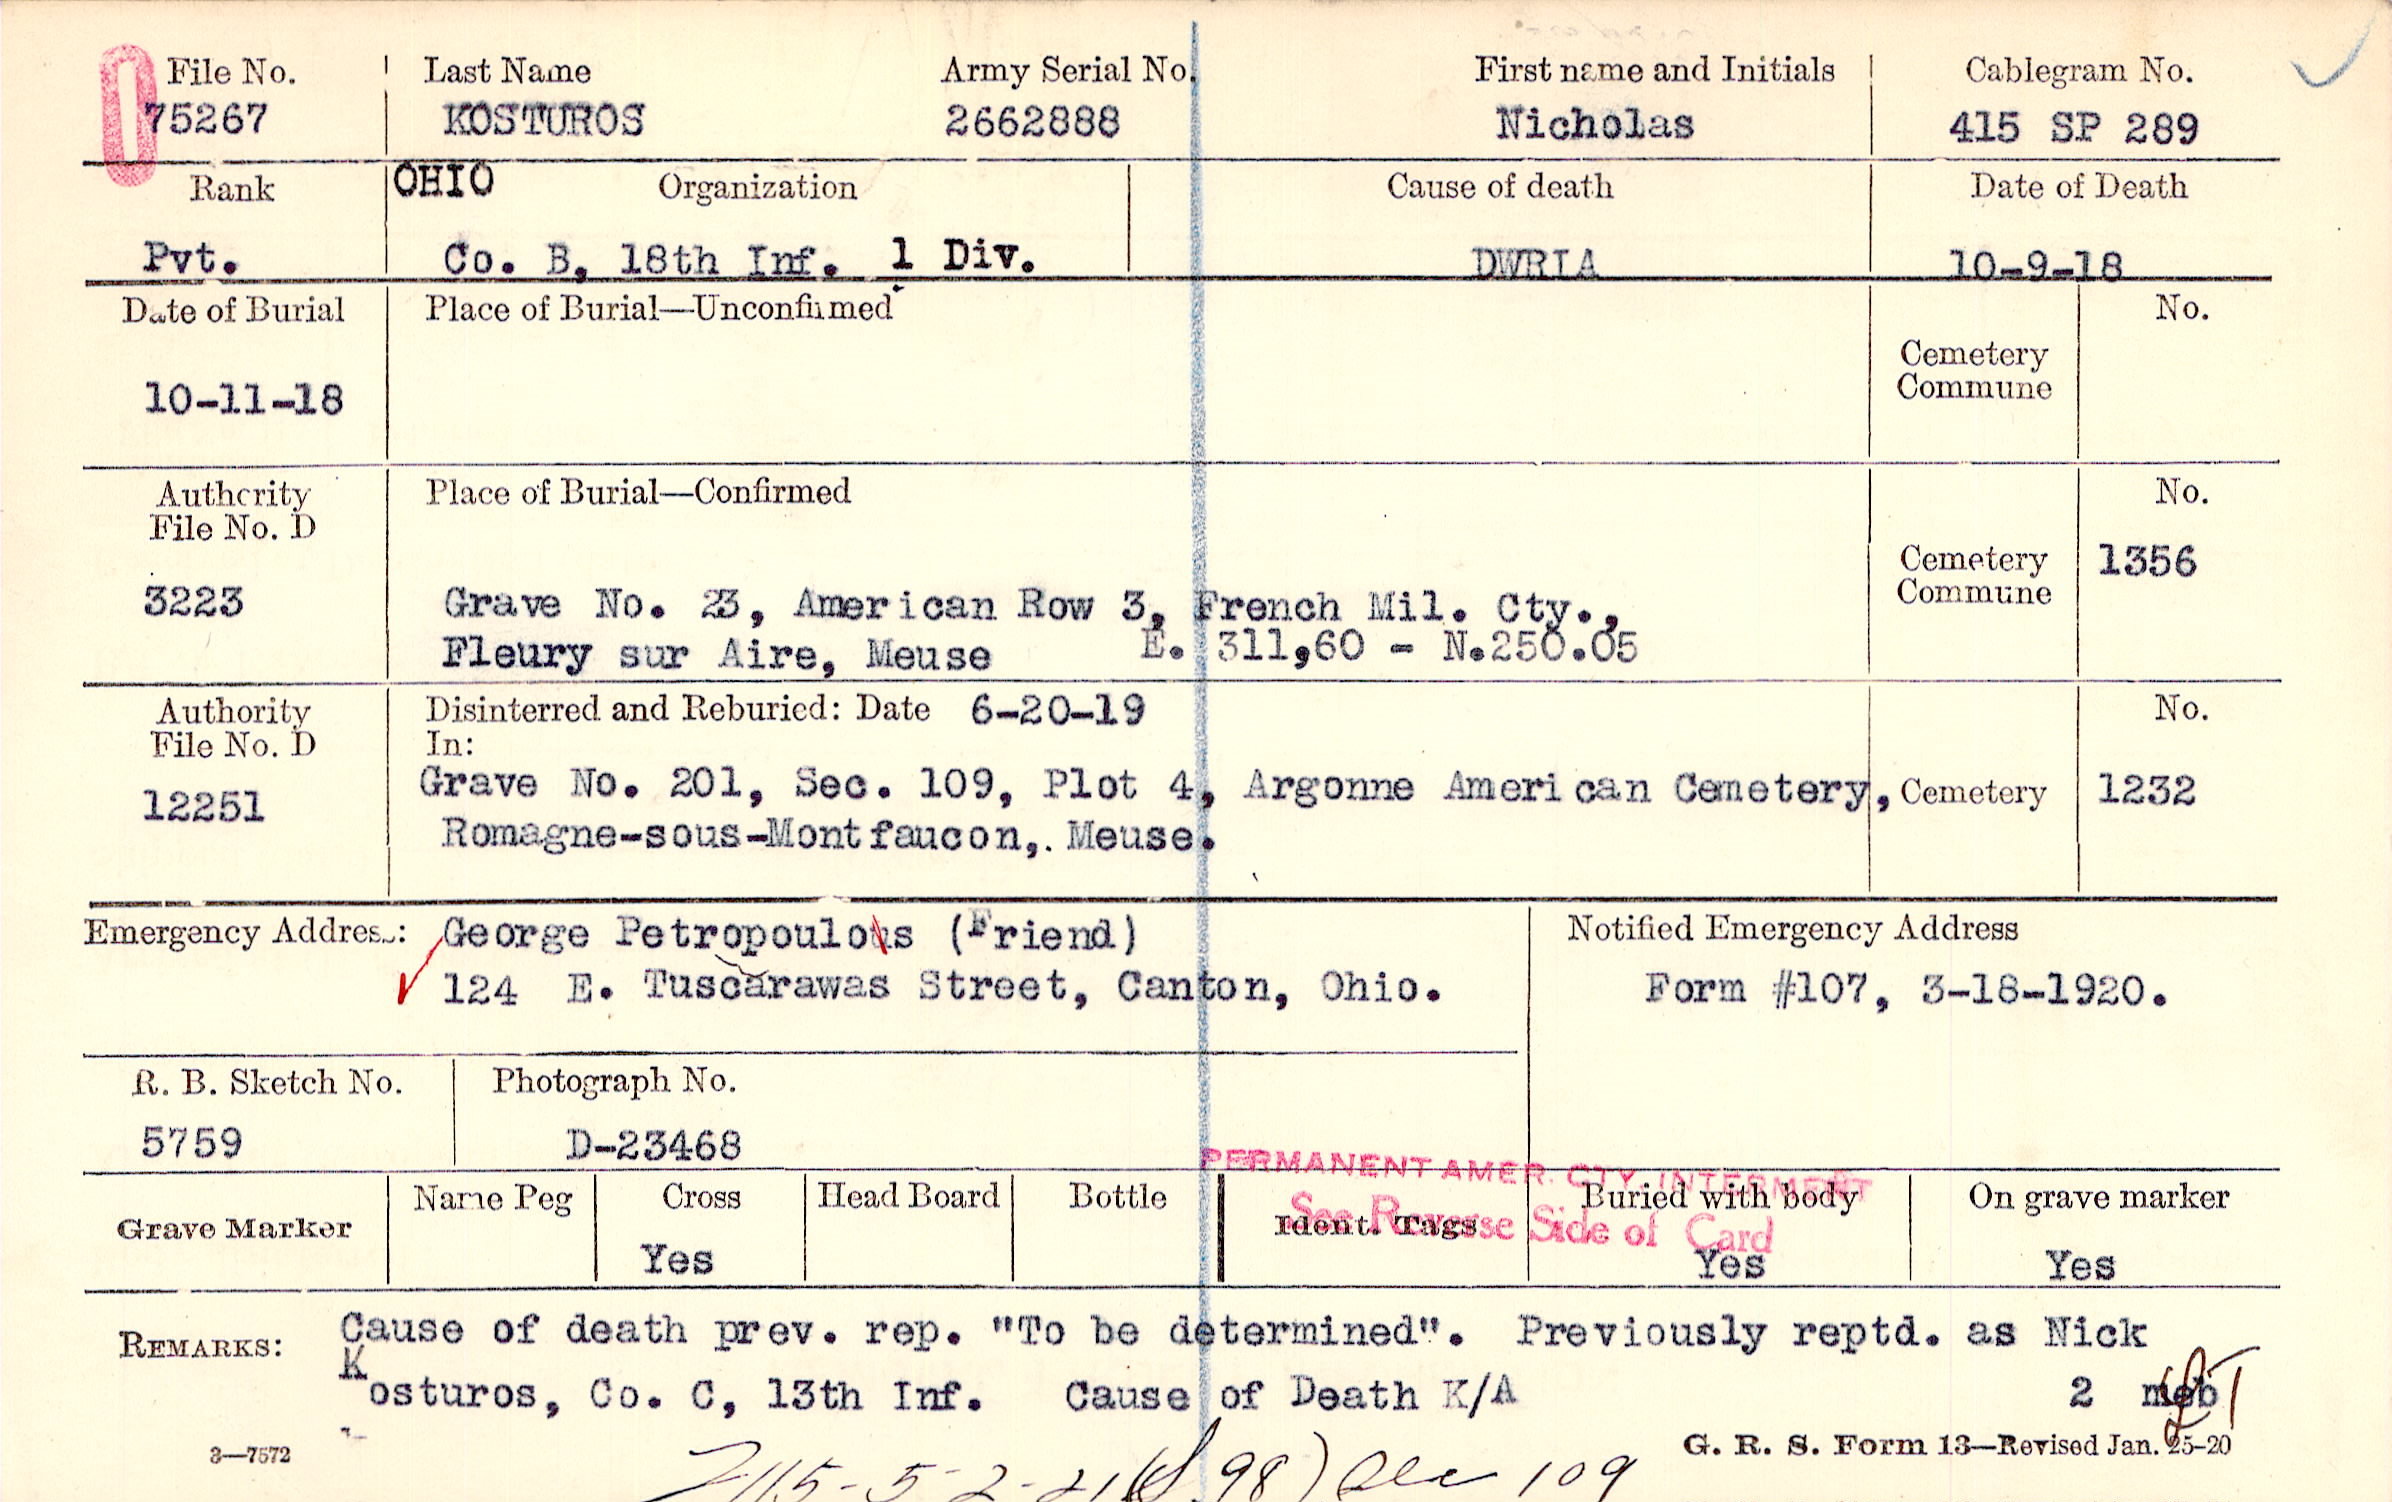 File No. Last Name Army Serial No. First name and Initials Cablegram No.
75267 KOSTUROS 2662888 Nicholas 415 SP 289
Rank OHIO Organization Cause of death Date of Death
Pvt. Co. B, 18th Inf. 1 Div. DWRIA 10-9-18
Date of Burial Place of Burial—Unconfirmed No.
Cemetery
Commune
10-11-18
Authority Place of Burial—Confirmed No.
File No. D
Cemetery 1356
Commune
3223 Grave No. 23, American Row 3, French Mil. Cty.,
Fleury sur Aire, Meuse E. 311,60 - N.250.05
Authority Disinterred and Reburied: Date 6-20-19 No.
File No. D In:
Grave No. 201, Sec. 109, Plot 4, Argonne American Cemetery, Cemetery 1232
12251
Romagne-sous-Montfaucon,. Meuse.
Emergency Address: George Petropoulos (Friend) Notified Emergency Address
124 E. Tuscarawas Street, Canton, Ohio. Form #107, 3-18-1920.
R. B. Sketch No. Photograph No.
5759 D-23468
PERMANENT AMER. CTY. INTERMENT
See Reverse Side of Card
Grave Marker Name Peg Cross Head Board Bottle Ident. Tags Buried with body On grave marker
Yes Yes Yes
REMARKS: Cause of death prev. rep. "To be determined". Previously reptd. as Nick
Kosturos, Co. C, 13th Inf. Cause of Death K/A 2 meb
3—7572 G. R. S. Form 13—Revised Jan. 25-20
109